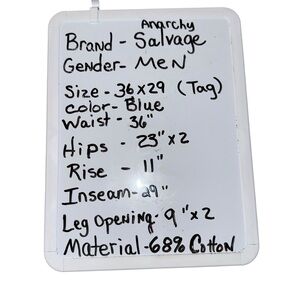 Anarchy
Brand - Salvage
Gender - MEN
Size - 36x29 (Tag)
Color - Blue
Waist - 36"
Hips - 23" x 2
Rise - 11"
Inseam - 29"
Leg Opening - 9" x 2
Material - 68% Cotton